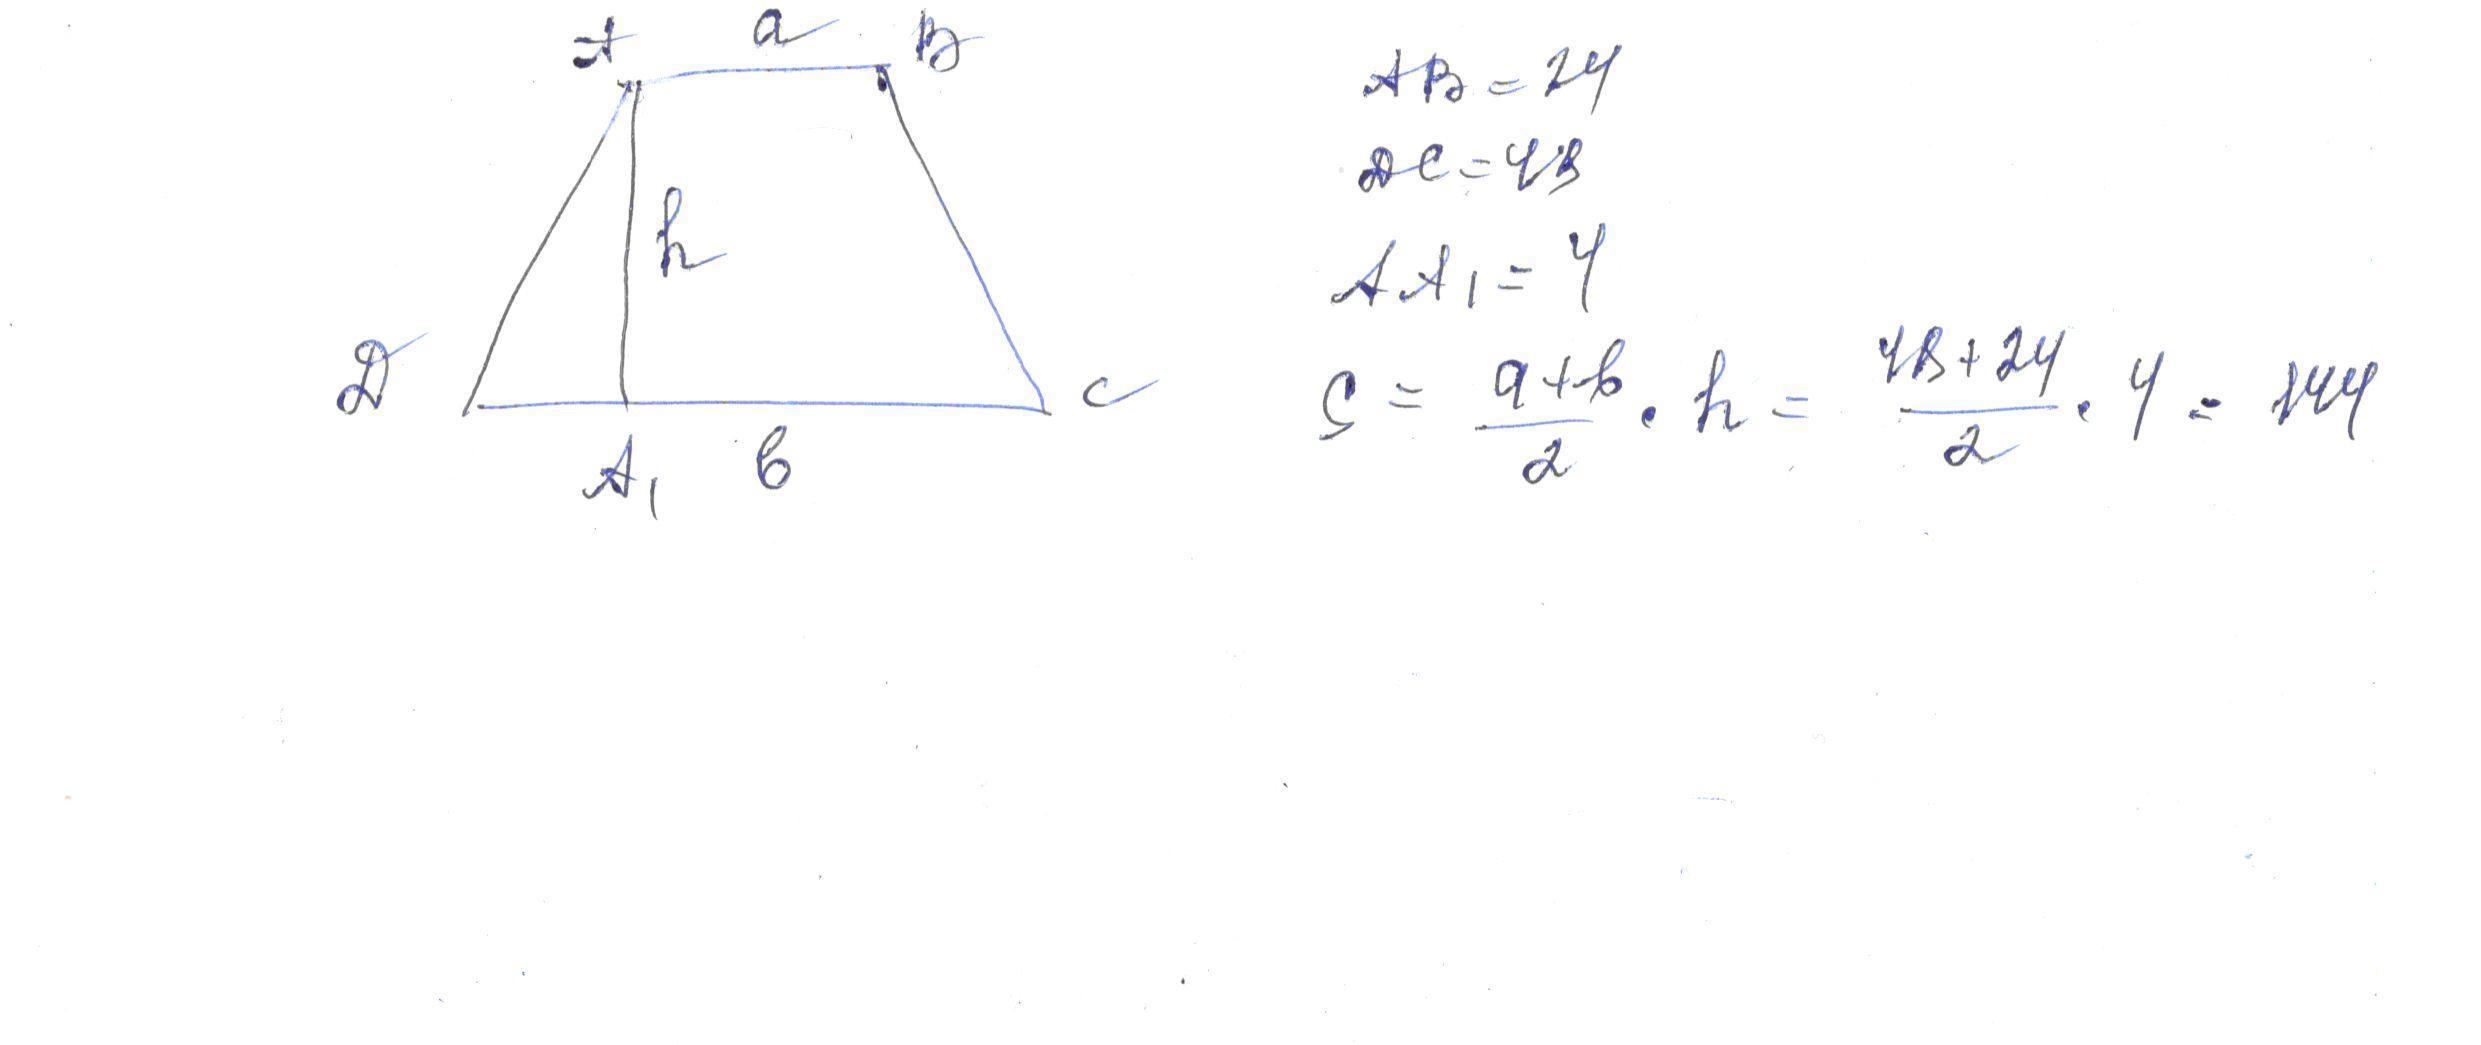 A a B
h
D C
A₁ b
AB = 24
DC = 48
AA₁ = 4
S = (a + b)/2 · h = (48 + 24)/2 · 4 = 144